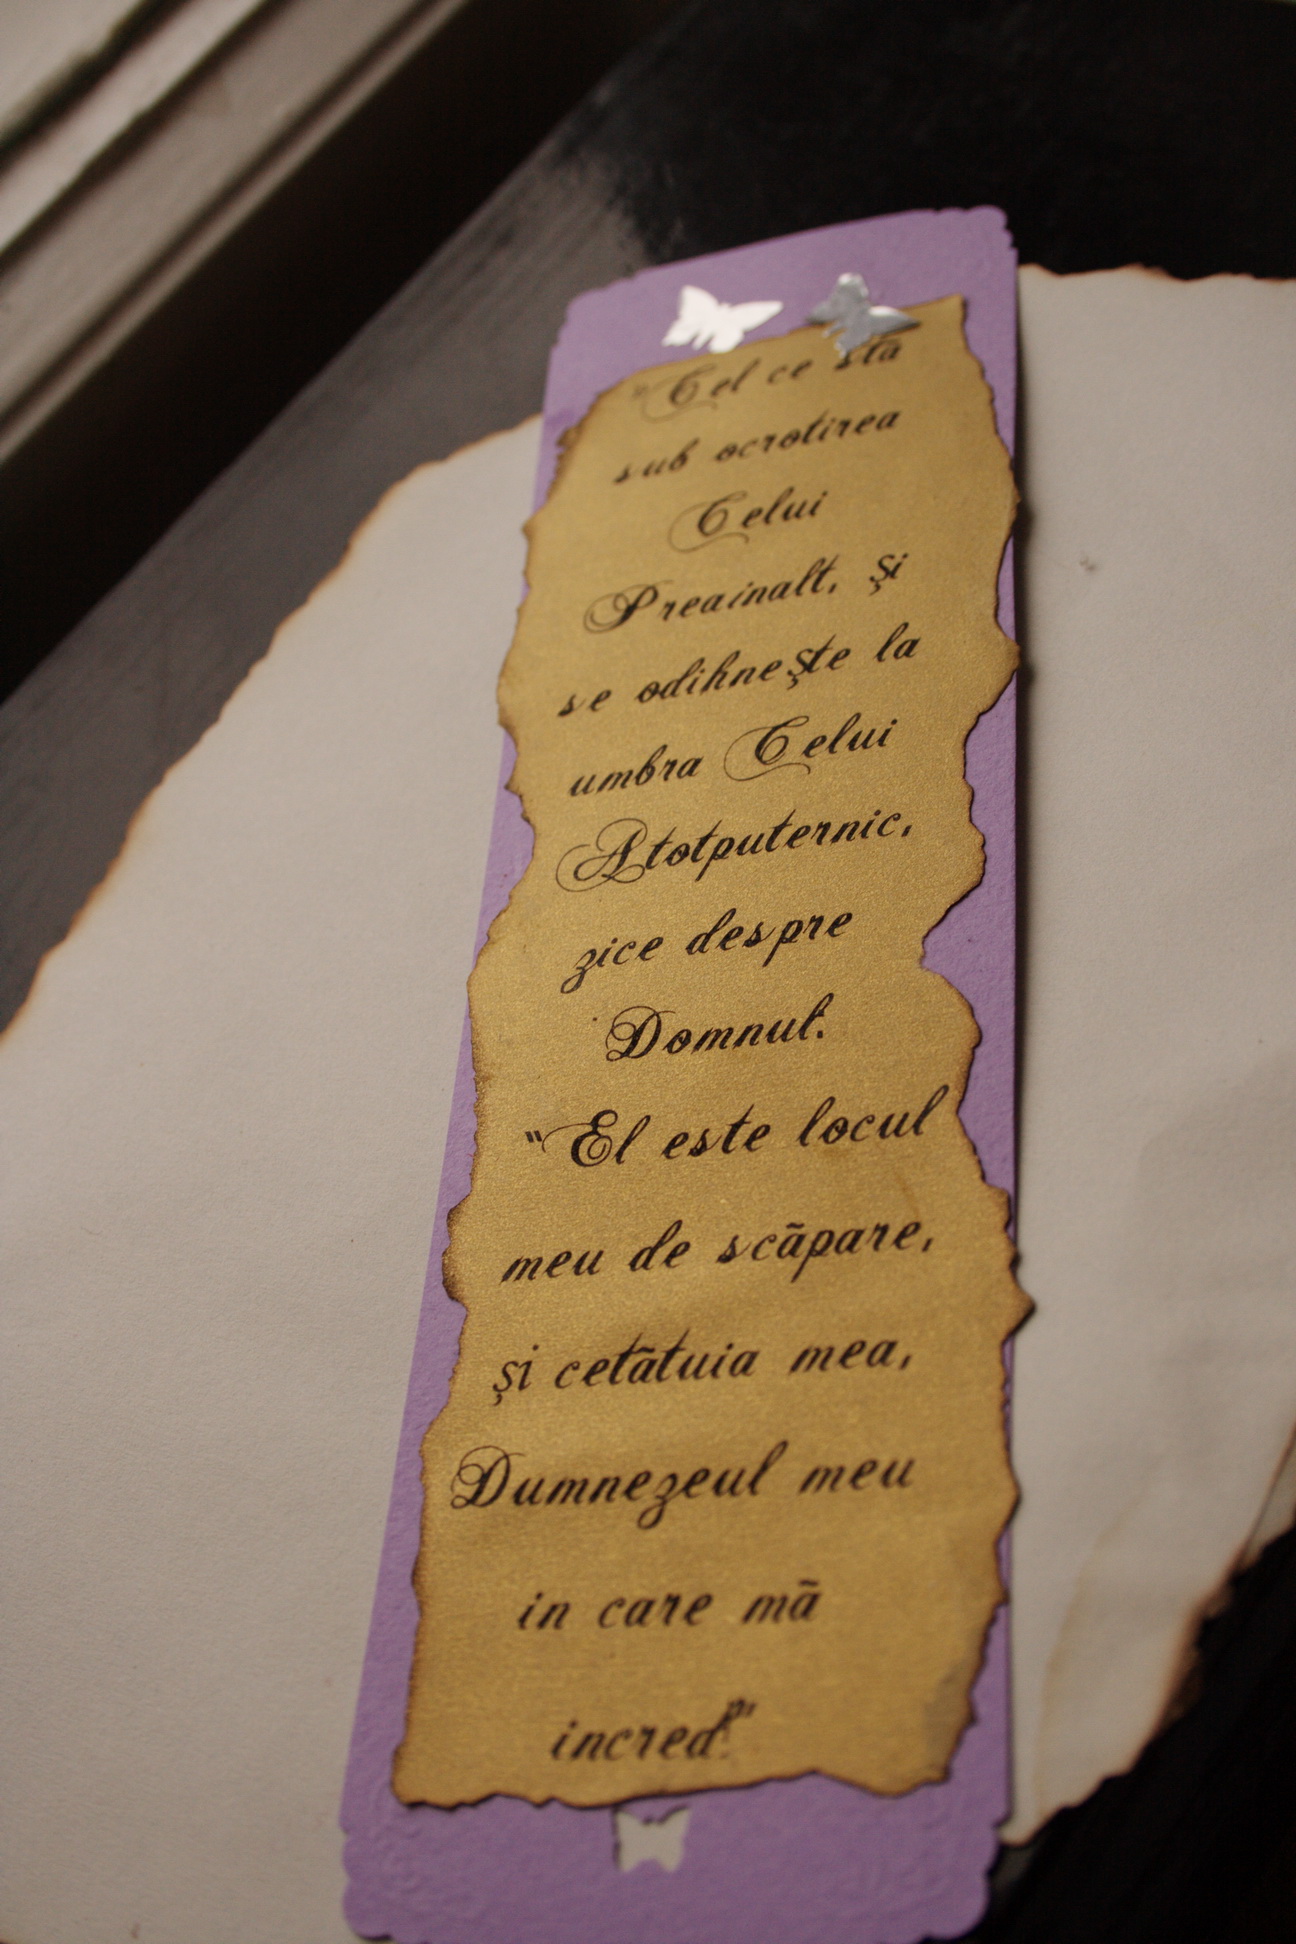 "Cel ce stã
sub ocrotirea
Celui
Preainalt, şi
se odihneşte la
umbra Celui
Atotputernic,
zice despre
Domnul:
"El este locul
meu de scãpare,
şi cetãtuia mea,
Dumnezeul meu
in care mã
incred!""